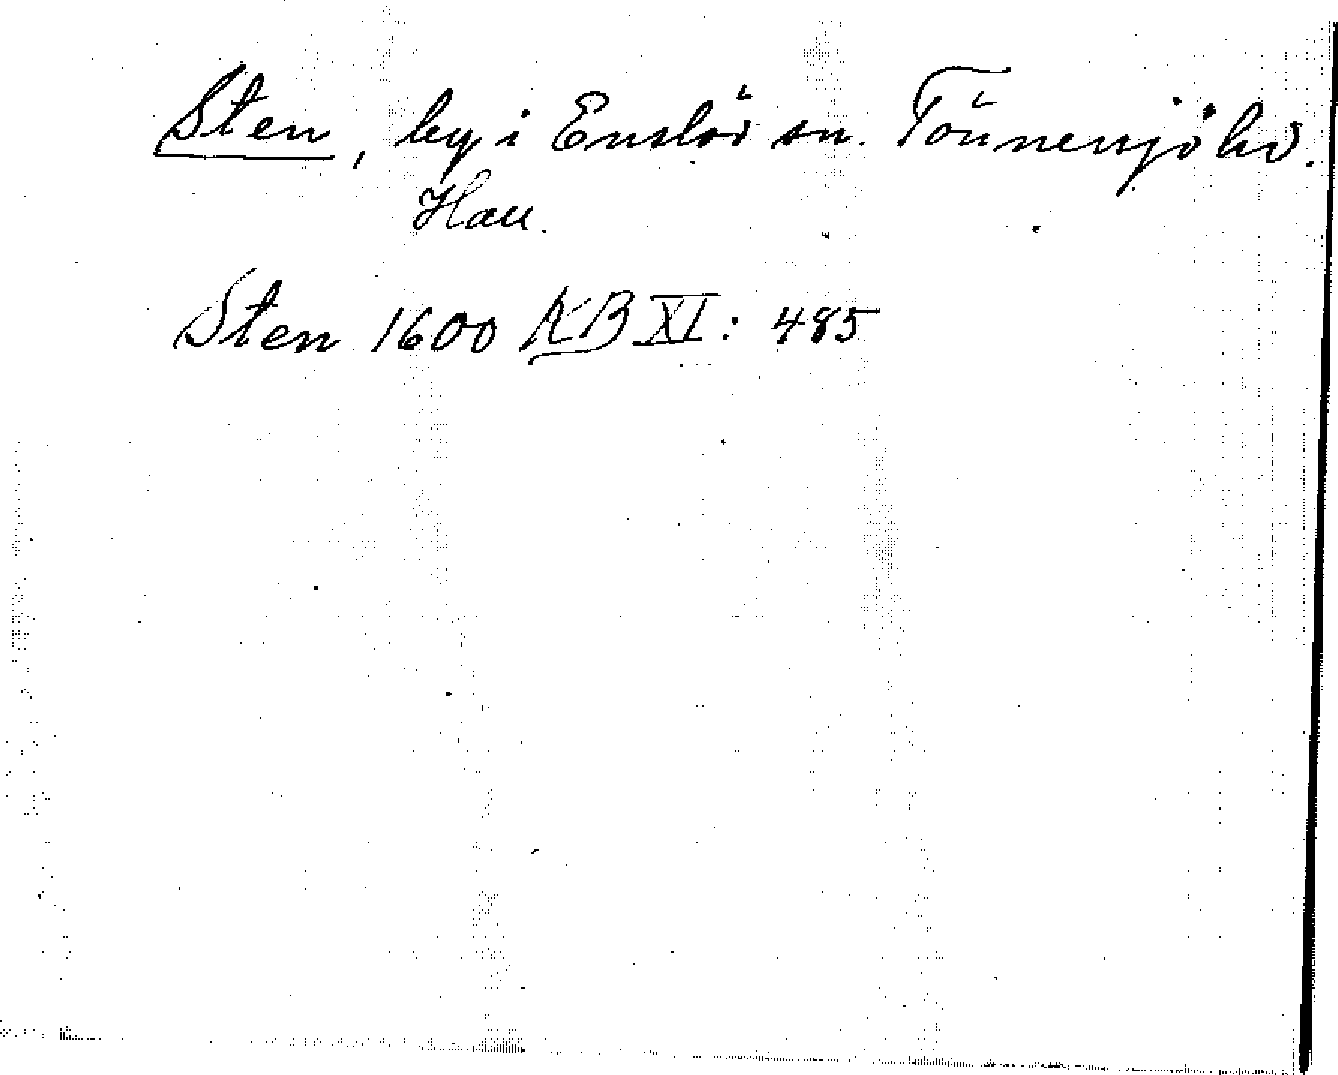 Sten, by i Enslöv sn. Tönnersjö hd.
Hall.
Sten 1600 KB XI: 485